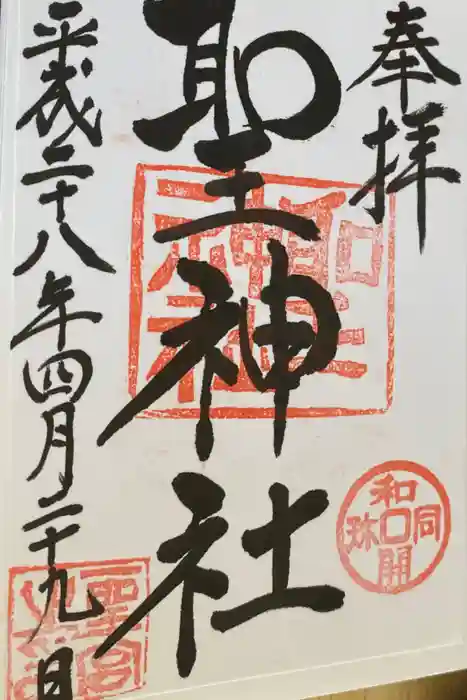 奉拝
聖神社
聖神社
和同開珎
平成二十八年四月二十九日